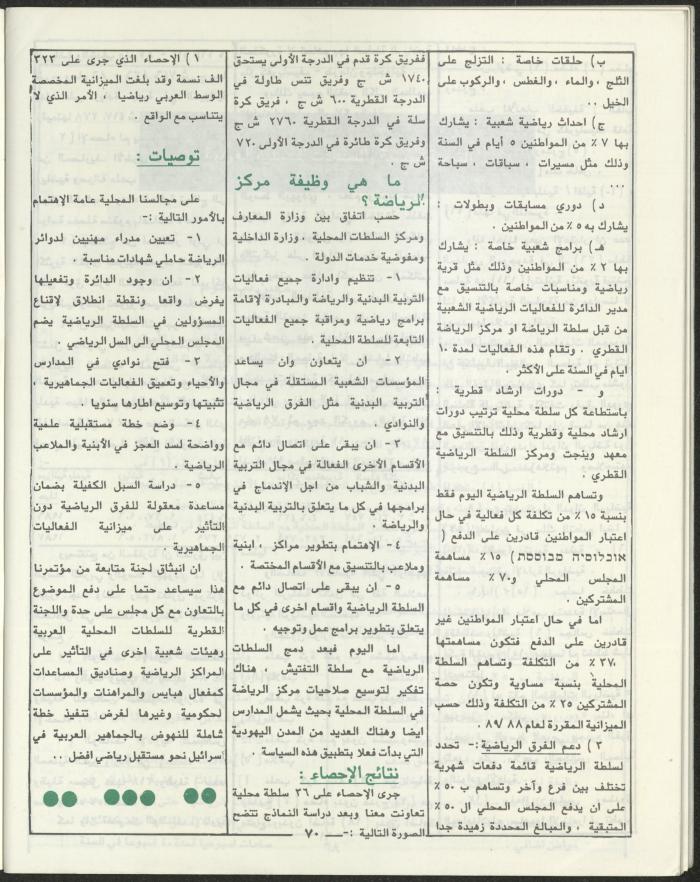 ب) حلقات خاصة : التزلج على
الثلج ، والماء ، والغطس ، والركوب على
الخيل ..
ج) احداث رياضية شعبية : يشارك
بها ٧ ٪ من المواطنين ٥ أيام في السنة
وذلك مثل مسيرات ، سباقات ، سباحة
...
د) دوري مسابقات وبطولات :
يشارك به ٥ ٪ من المواطنين .
هـ) برامج شعبية خاصة : يشارك
بها ٢ ٪ من المواطنين وذلك مثل قرية
رياضية ومناسبات خاصة بالتنسيق مع
مدير الدائرة للفعاليات الرياضية الشعبية
من قبل سلطة الرياضة او مركز الرياضة
القطري . وتقام هذه الفعاليات لمدة ١٠
ايام في السنة على الأكثر .
و - دورات ارشاد قطرية :
باستطاعة كل سلطة محلية ترتيب دورات
ارشاد محلية وقطرية وذلك بالتنسيق مع
معهد وينجت ومركز السلطة الرياضية
القطري .
وتساهم السلطة الرياضية اليوم فقط
بنسبة ١٥ ٪ من تكلفة كل فعالية في حال
اعتبار المواطنين قادرين على الدفع (
אוכלוסיה מבוססת ) ١٥ ٪ مساهمة
المجلس المحلي و٧٠ ٪ مساهمة
المشتركين .
اما في حال اعتبار المواطنين غير
قادرين على الدفع فتكون مساهمتها
٣٧٪ من التكلفة وتساهم السلطة
المحلية بنسبة مساوية وتكون حصة
المشتركين ٢٥ ٪ من التكلفة وذلك حسب
الميزانية المقررة لعام ٨٨ /٨٩ .
٣ ) دعم الفرق الرياضية :- تحدد
لسلطة الرياضية قائمة دفعات شهرية
تختلف بين فرع وآخر وتساهم ب ٥٠ ٪
على ان يدفع المجلس المحلي ال ٥٠ ٪
المتبقية ، والمبالغ المحددة زهيدة جدا
ففريق كرة قدم في الدرجة الأولى يستحق
١٧٤٠ ش ج وفريق تنس طاولة في
الدرجة القطرية ٦٠٠ ش ج ، فريق كرة
سلة في الدرجة القطرية ٢٧٦٠ ش ج
وفريق كرة طائرة في الدرجة الأولى ٧٢٠
ش ج .
ما هي وظيفة مركز
الرياضة ؟
حسب اتفاق بين وزارة المعارف
ومركز السلطات المحلية ، وزارة الداخلية
ومفوضية خدمات الدولة .
١- تنظيم وادارة جميع فعاليات
التربية البدنية والرياضة والمبادرة لإقامة
برامج رياضية ومراقبة جميع الفعاليات
التابعة للسلطة المحلية .
٢- ان يتعاون وان يساعد
المؤسسات الشعبية المستقلة في مجال
التربية البدنية مثل الفرق الرياضية
والنوادي .
٣- ان يبقى على اتصال دائم مع
الأقسام الأخرى الفعالة في مجال التربية
البدنية والشباب من اجل الإندماج في
برامجها في كل ما يتعلق بالتربية البدنية
والرياضة .
٤- الإهتمام بتطوير مراكز ، ابنية
وملاعب بالتنسيق مع الأقسام المختصة .
٥- ان يبقى على اتصال دائم مع
السلطة الرياضية واقسام اخرى في كل ما
يتعلق بتطوير برامج عمل وتوجيه .
اما اليوم فبعد دمج السلطات
الرياضية مع سلطة التفتيش ، هناك
تفكير لتوسيع صلاحيات مركز الرياضة
في السلطة المحلية بحيث يشمل المدارس
ايضا وهناك العديد من المدن اليهودية
التي بدأت فعلا بتطبيق هذه السياسة .
نتائج الإحصاء :
جرى الإحصاء على ٣٦ سلطة محلية
تعاونت معنا وبعد دراسة النماذج تتضح
الصورة التالية :-
١ ) الإحصاء الذي جرى على ٣٢٣
الف نسمة وقد بلغت الميزانية المخصصة
الوسط العربي رياضيا ، الأمر الذي لا
يتناسب مع الواقع .
توصيات :
على مجالسنا المحلية عامة الإهتمام
بالأمور التالية :-
١- تعيين مدراء مهنيين لدوائر
الرياضة حاملي شهادات مناسبة .
٢- ان وجود الدائرة وتفعيلها
يفرض واقعا ونقطة انطلاق لإقناع
المسؤولين في السلطة الرياضية يضم
المجلس المحلي الى السل الرياضي .
٣- فتح نوادي في المدارس
والأحياء وتعميق الفعاليات الجماهيرية ،
تثبيتها وتوسيع اطارها سنويا .
٤- وضع خطة مستقبلية علمية
وواضحة لسد العجز في الأبنية والملاعب
الرياضية .
٥- دراسة السبل الكفيلة بضمان
مساعدة معقولة للفرق الرياضية دون
التأثير على ميزانية الفعاليات
الجماهيرية .
ان انبثاق لجنة متابعة من مؤتمرنا
هذا سيساعد حتما على دفع الموضوع
بالتعاون مع كل مجلس على حدة واللجنة
القطرية للسلطات المحلية العربية
وهيئات شعبية اخرى في التأثير على
المراكز الرياضية وصناديق المساعدات
كمفعال هبايس والمراهنات والمؤسسات
لحكومية وغيرها لغرض تنفيذ خطة
شاملة للنهوض بالجماهير العربية في
اسرائيل نحو مستقبل رياضي افضل ..
٧٠